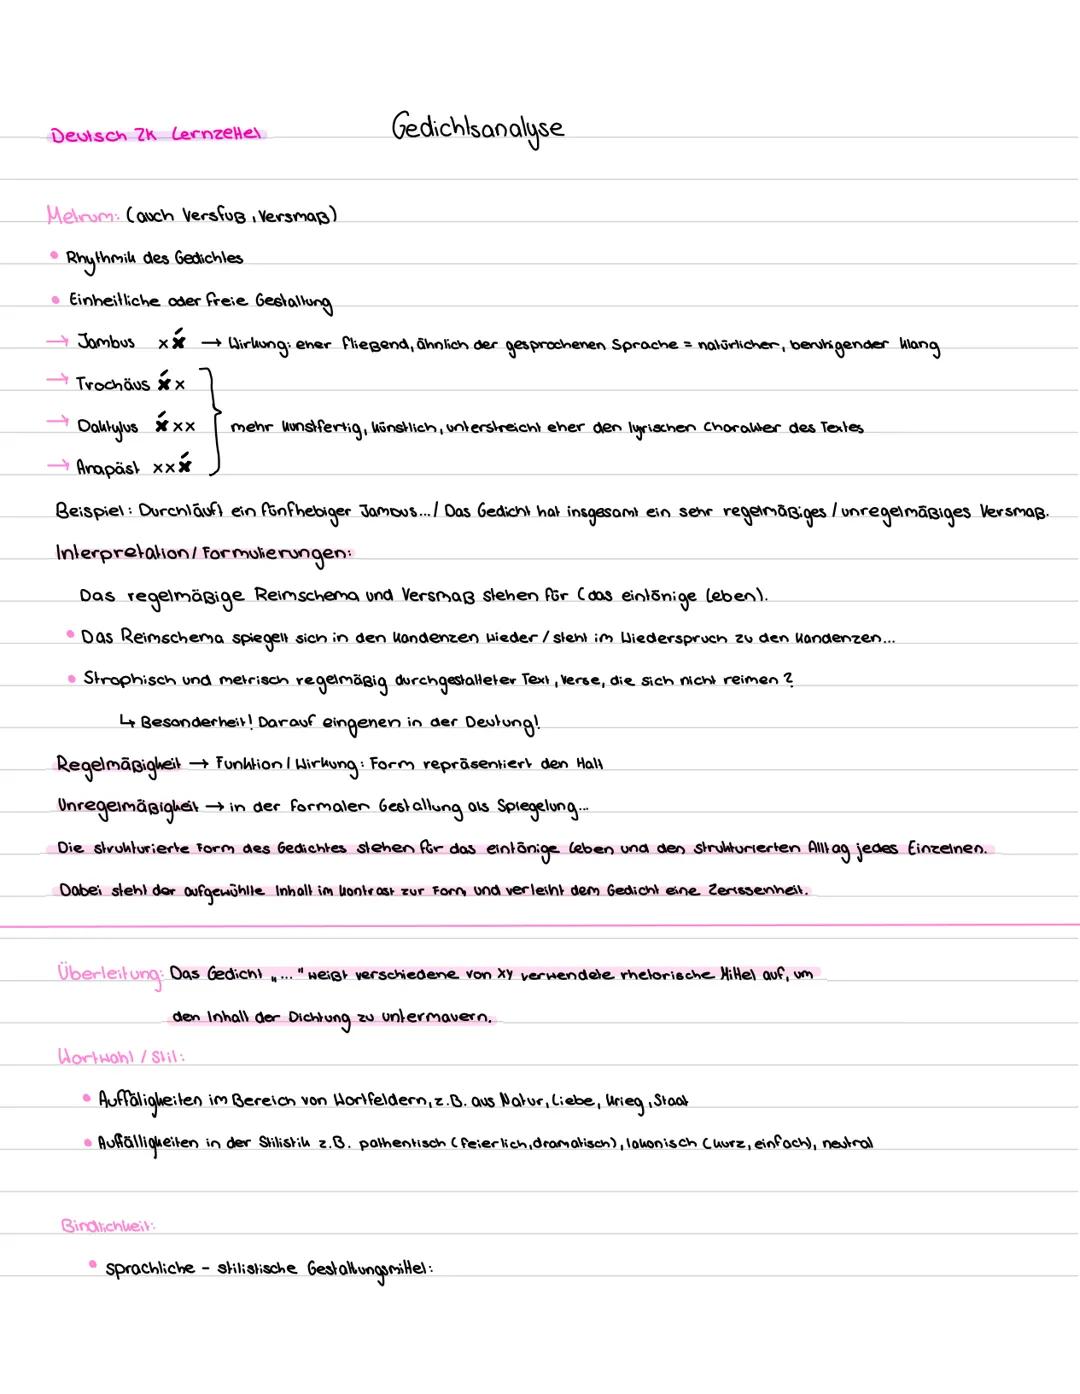 Deutsch ZK Lernzettel
Gedichtsanalyse
Metrum: (auch Versfuß, Versmaß)
• Rhythmik des Gedichtes
• Einheitliche oder freie Gestaltung
→ Jambus x x́ → Wirkung: eher fließend, ähnlich der gesprochenen Sprache = natürlicher, beruhigender Klang
→ Trochäus x́ x
→ Daktylus x́ x x mehr kunstfertig, künstlich, unterstreicht eher den lyrischen Charakter des Textes
→ Anapäst x x x́
Beispiel: Durchläuft ein fünfhebiger Jambus.../ Das Gedicht hat insgesamt ein sehr regelmäßiges / unregelmäßiges Versmaß.
Interpretation/ Formulierungen:
Das regelmäßige Reimschema und Versmaß stehen für (das eintönige Leben).
• Das Reimschema spiegelt sich in den Kandenzen wieder / steht im Wiederspruch zu den Kandenzen...
• Strophisch und metrisch regelmäßig durchgestalteter Text, Verse, die sich nicht reimen ?
↳ Besonderheit! Darauf eingehen in der Deutung!
Regelmäßigkeit → Funktion / Wirkung: Form repräsentiert den Halt
Unregelmäßigkeit → in der formalen Gestaltung als Spiegelung...
Die strukturierte Form des Gedichtes stehen für das eintönige Leben und den strukturierten Alltag jedes Einzelnen.
Dabei steht der aufgewühlte Inhalt im Kontrast zur Form und verleiht dem Gedicht eine Zerissenheit.
Überleitung: Das Gedicht „..." weißt verschiedene von xy verwendete rhetorische Mittel auf, um
den Inhalt der Dichtung zu untermauern.
Wortwahl / Stil:
• Auffäligkeiten im Bereich von Wortfeldern, z.B. aus Natur, Liebe, Krieg, Staat
• Auffälligkeiten in der Stilistik z.B. pathentisch (feierlich, dramatisch), lakonisch (kurz, einfach), neutral
Bindlichkeit:
• sprachliche - stilistische Gestaltungsmittel: